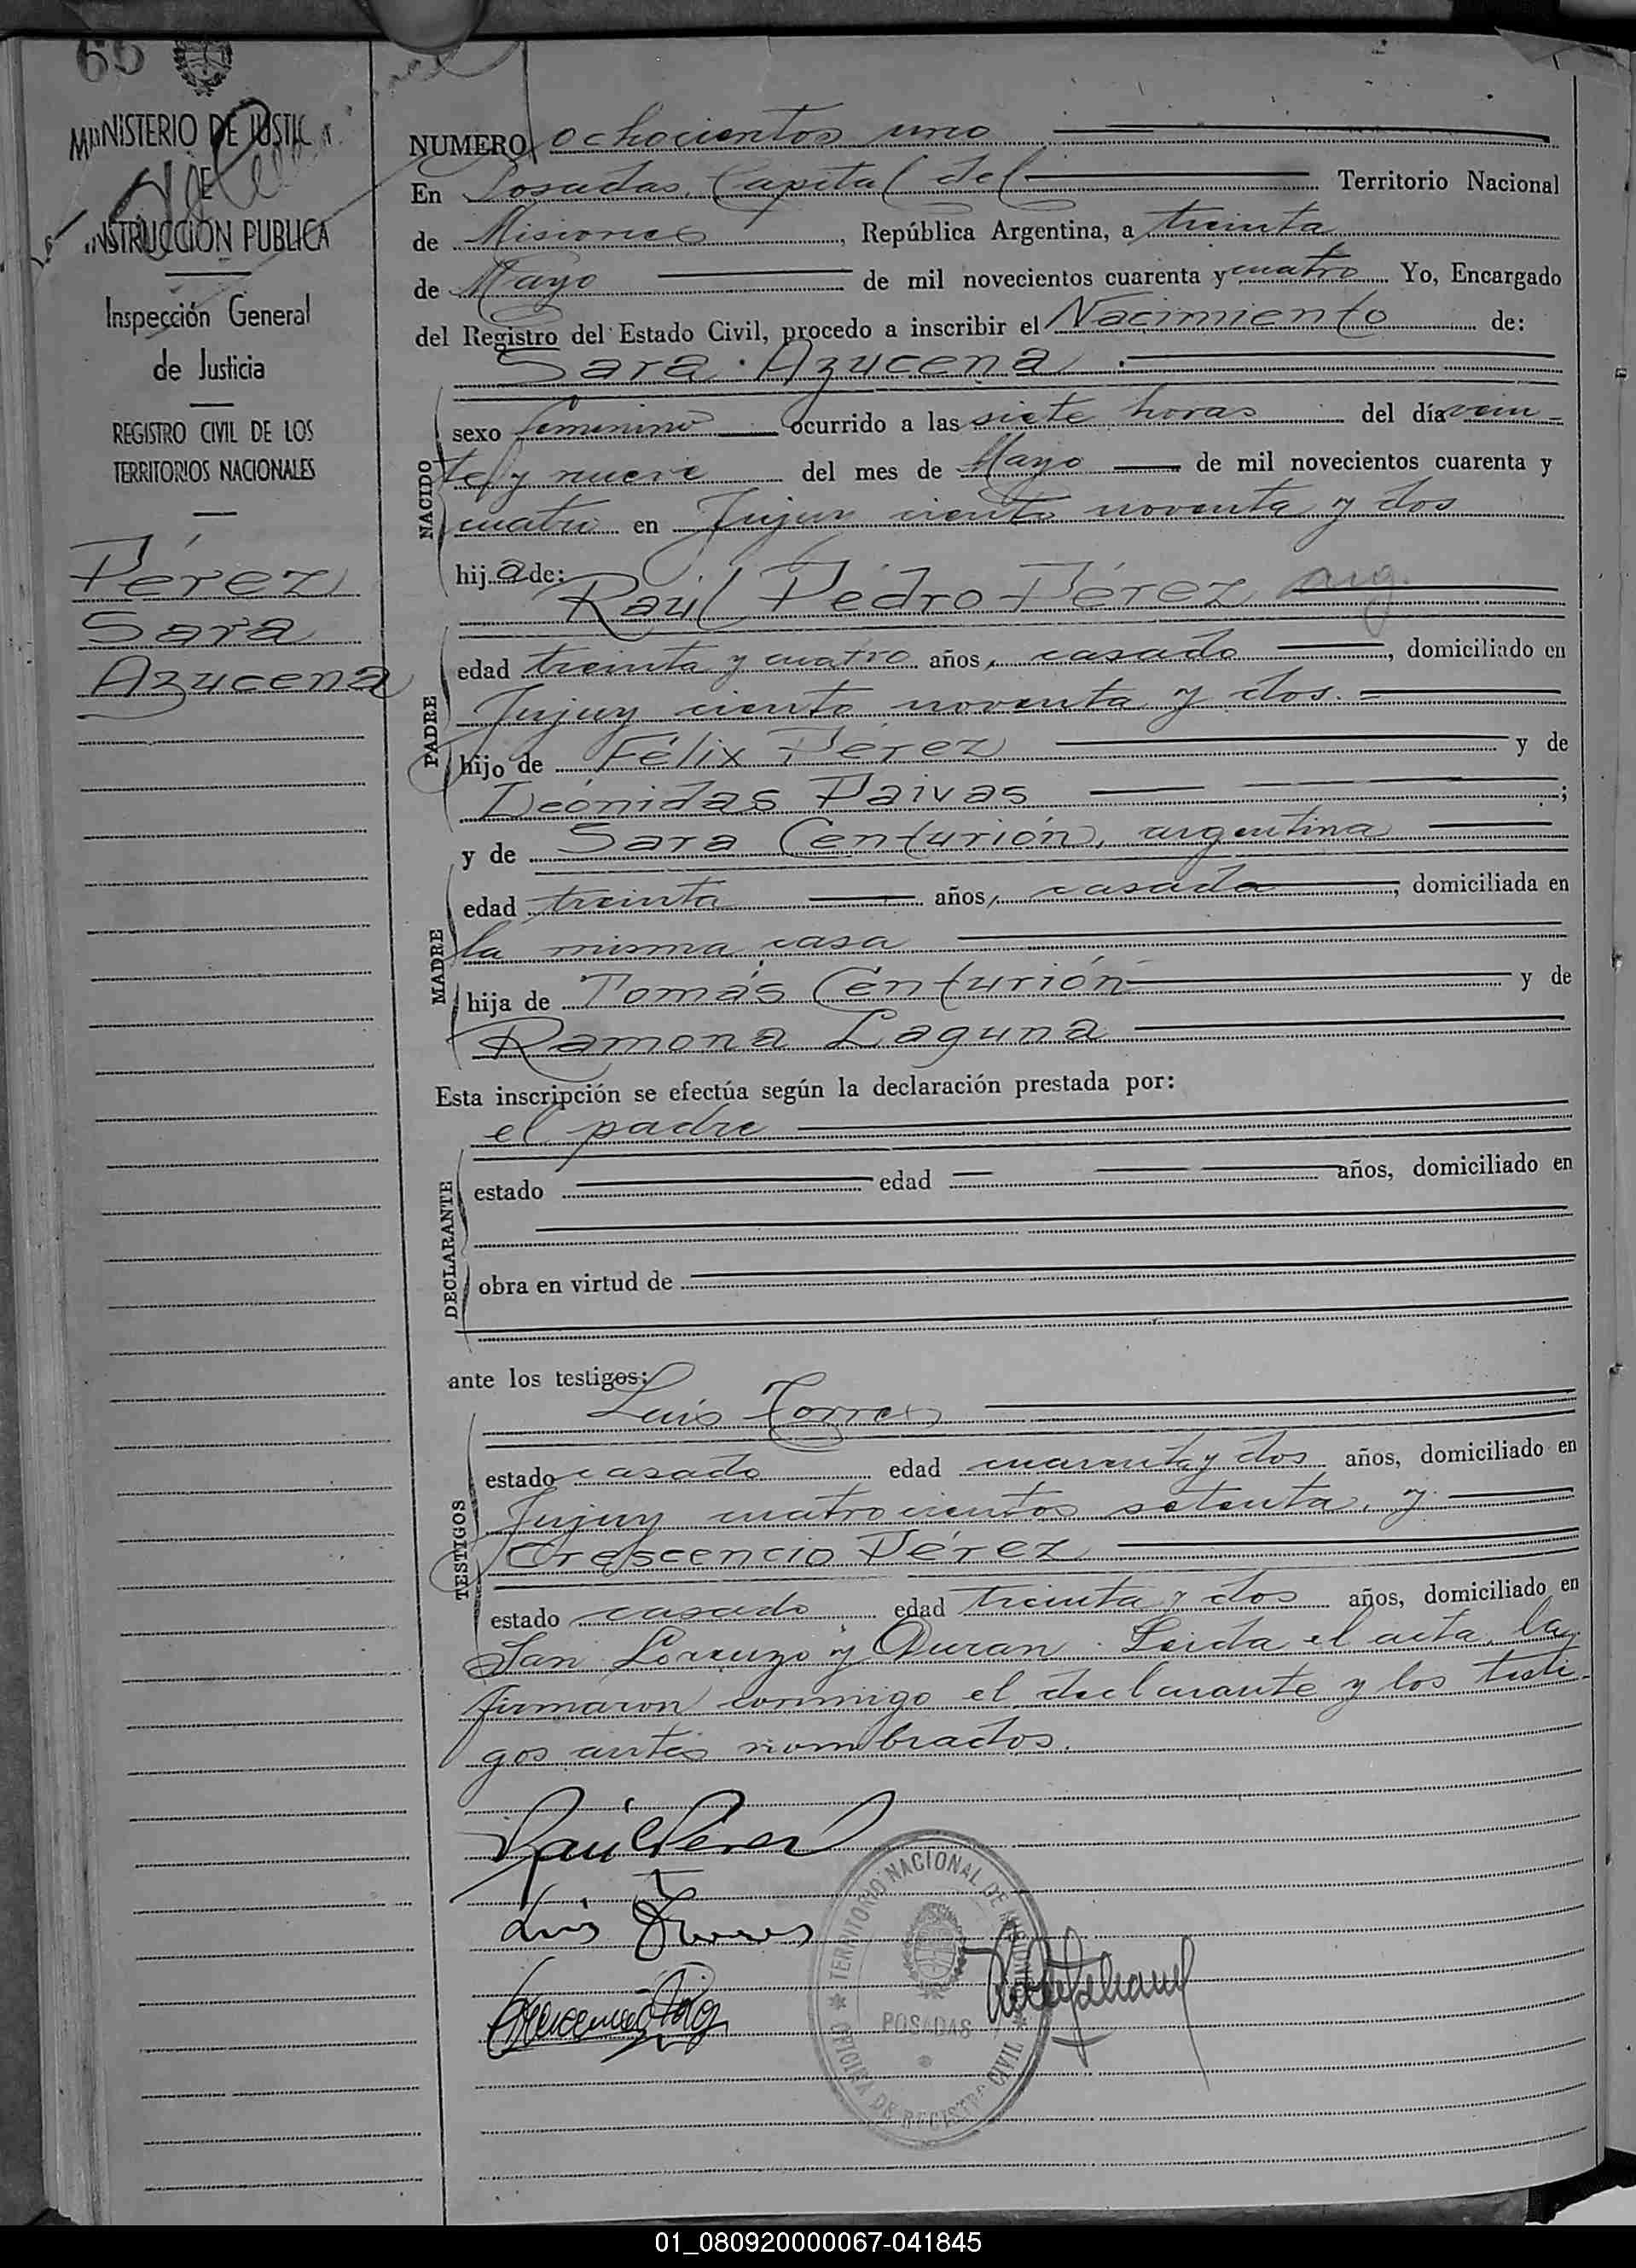 66
MINISTERIO DE JUSTICIA
E
INSTRUCCIÓN PUBLICA
Inspección General
de Justicia
REGISTRO CIVIL DE LOS
TERRITORIOS NACIONALES
Pérez
Sara
Azucena
NUMERO ochocientos uno
En Posadas, Capital del Territorio Nacional
de Misiones, República Argentina, a treinta
de Mayo de mil novecientos cuarenta y cuatro Yo, Encargado
del Registro del Estado Civil, procedo a inscribir el Nacimiento de:
Sara Azucena
NACIDO
sexo femenino ocurrido a las siete horas del día vein-
te y nueve del mes de Mayo de mil novecientos cuarenta y
cuatro en Jujuy ciento noventa y dos
hija de:
Raúl Pedro Pérez arg.
PADRE
edad treinta y cuatro años, casado, domiciliado en
Jujuy ciento noventa y dos.
hijo de Félix Pérez y de
Leónidas Paivas ;
y de Sara Centurión, argentina
MADRE
edad treinta años, casada, domiciliada en
la misma casa
hija de Tomás Centurión y de
Ramona Laguna
Esta inscripción se efectúa según la declaración prestada por:
el padre
DECLARANTE
estado edad años, domiciliado en
obra en virtud de
ante los testigos:
Luis Torres
TESTIGOS
estado casado edad cuarenta y dos años, domiciliado en
Jujuy cuatrocientos setenta, y
Crescencio Pérez
estado casado edad treinta y dos años, domiciliado en
San Lorenzo y Duran. Leida el acta, la
firmaron conmigo el declarante y los testi-
gos antes nombrados.
Raúl Pérez
Luis Torres
TERRITORIO NACIONAL DE MISIONES
POSADAS
OFICINA DE REGISTRO CIVIL
01_080920000067-041845